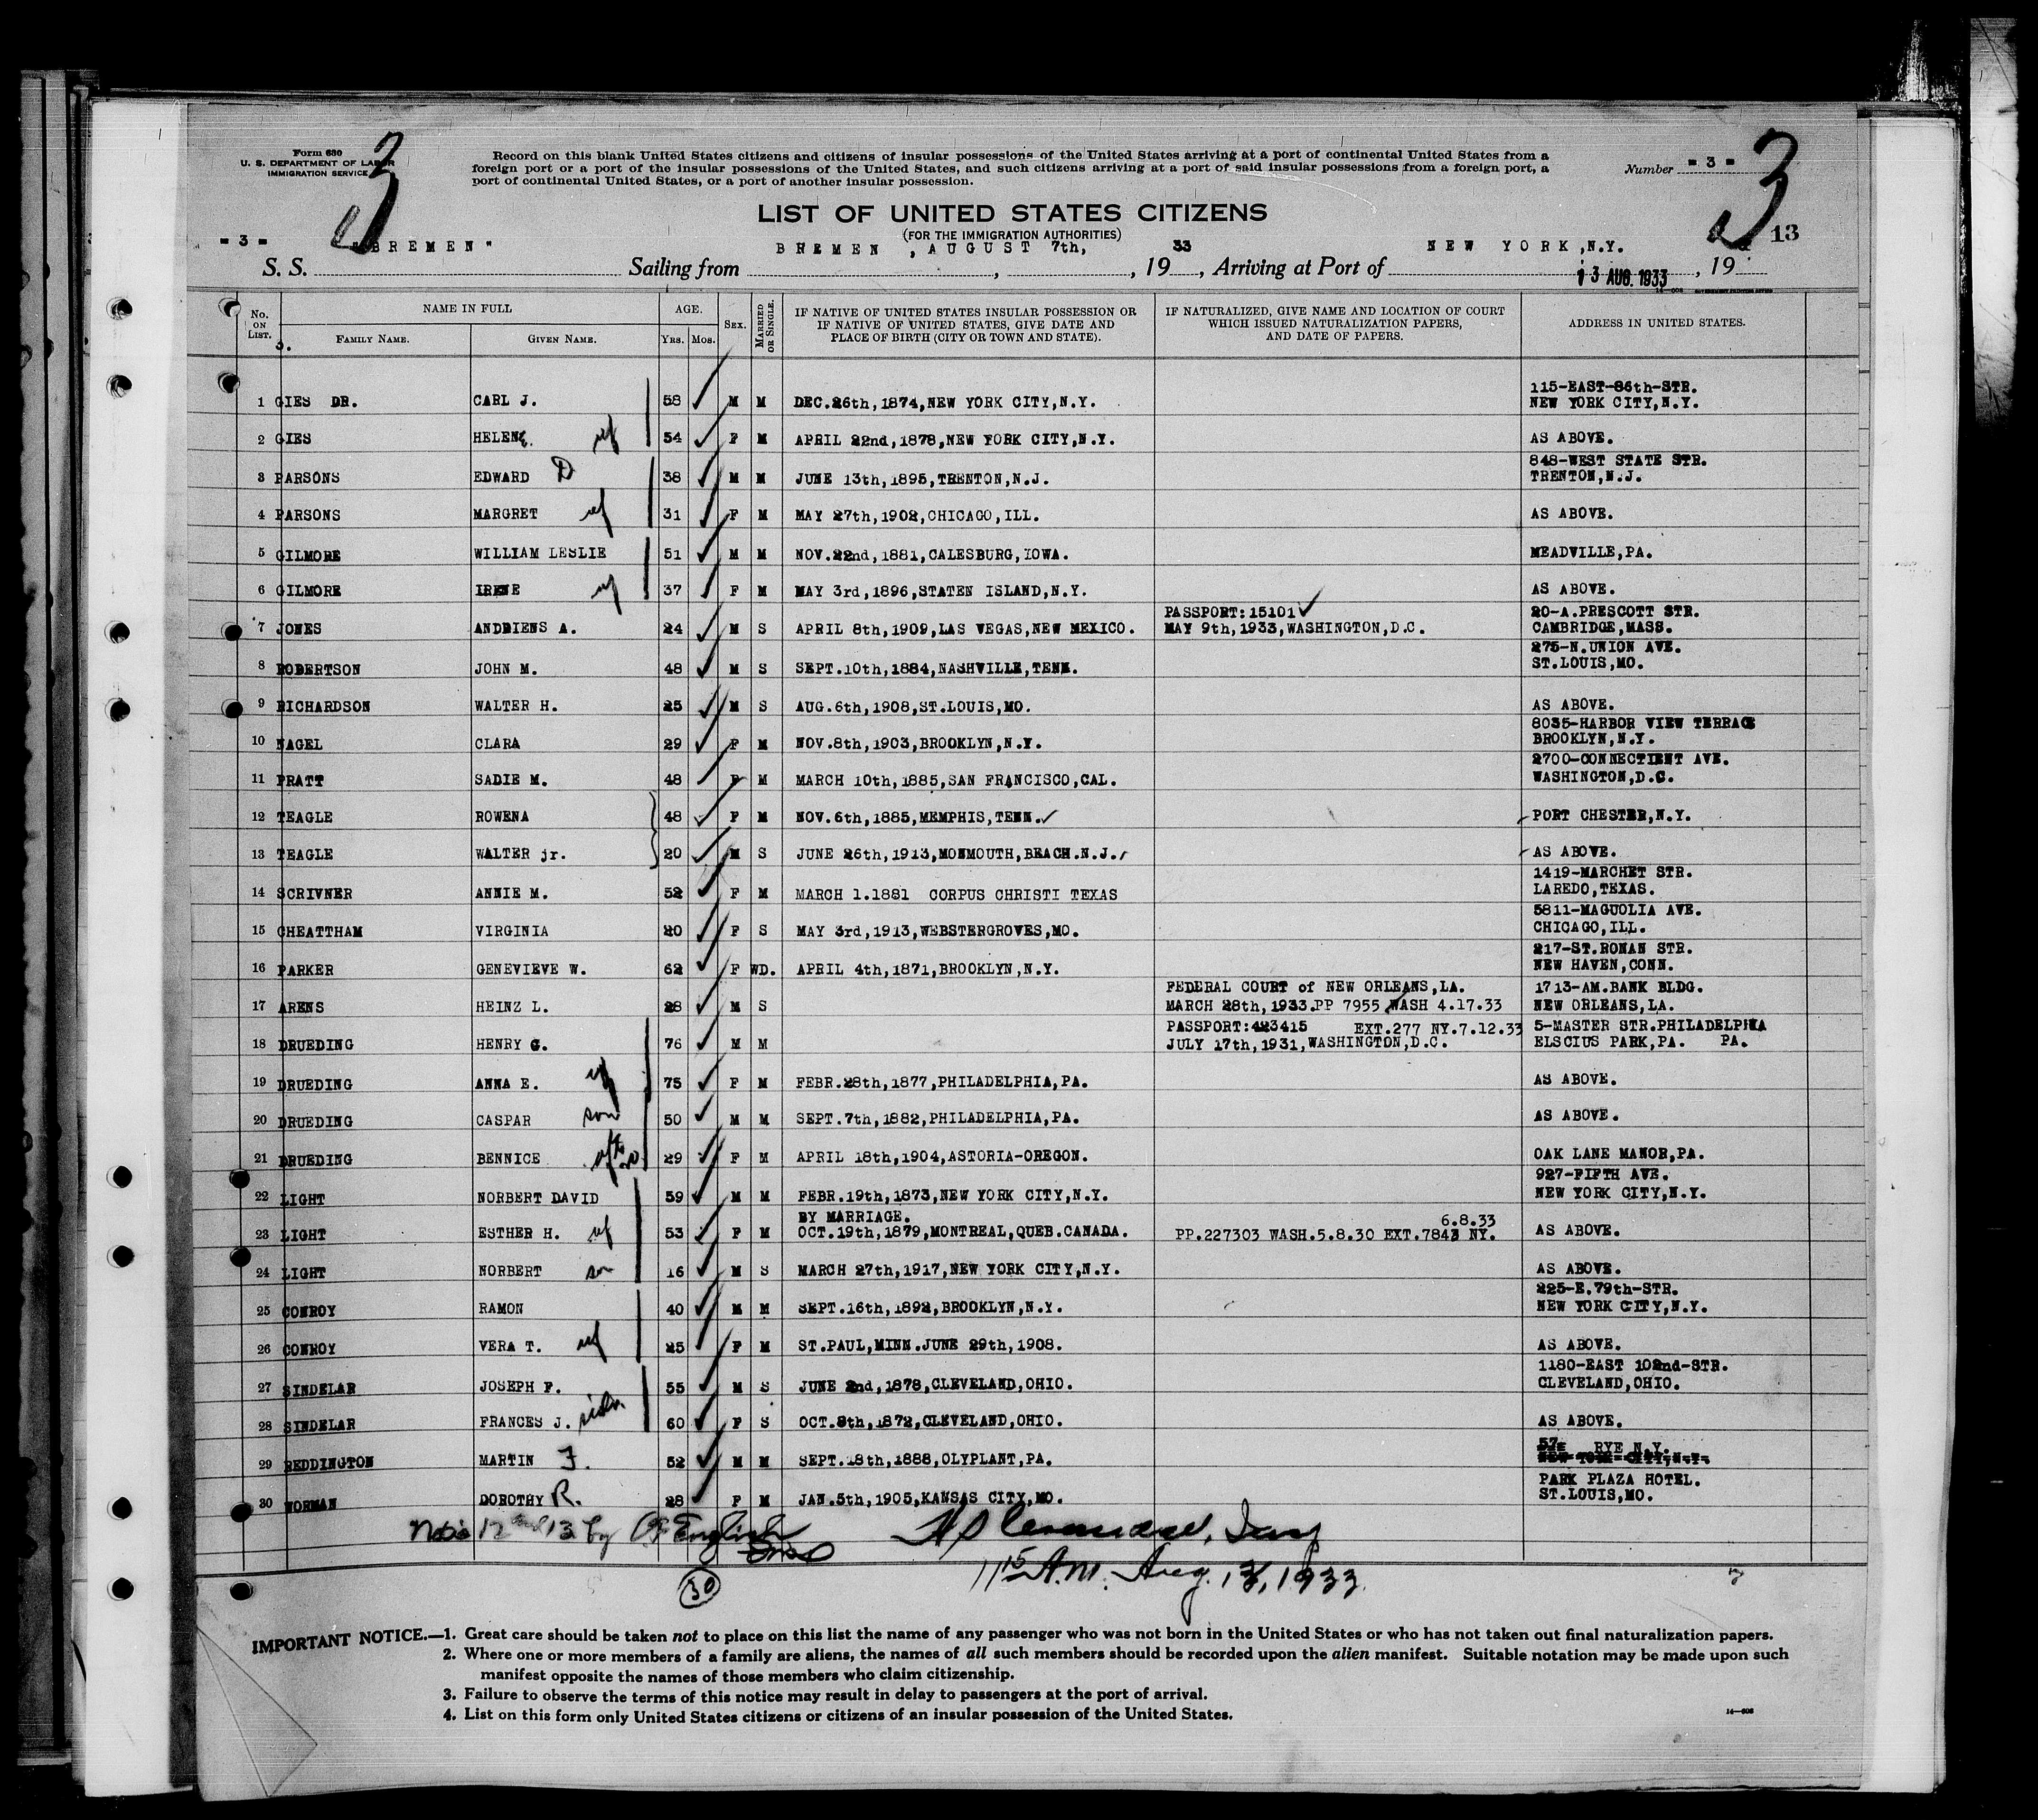 Form 630
U. S. DEPARTMENT OF LABOR
IMMIGRATION SERVICE
3
Record on this blank United States citizens and citizens of insular possessions of the United States arriving at a port of continental United States from a
foreign port or a port of the insular possessions of the United States, and such citizens arriving at a port of said insular possessions from a foreign port, a
port of continental United States, or a port of another insular possession.
Number = 3 =
3
LIST OF UNITED STATES CITIZENS
(FOR THE IMMIGRATION AUTHORITIES)
13
= 3 =
S. S. "BREMEN" Sailing from BREMEN, AUGUST 7th, 1933, Arriving at Port of NEW YORK, N.Y. 13 AUG. 1933, 19
No. ON LIST. NAME IN FULL AGE. SEX. MARRIED OR SINGLE. IF NATIVE OF UNITED STATES INSULAR POSSESSION OR IF NATIVE OF UNITED STATES, GIVE DATE AND PLACE OF BIRTH (CITY OR TOWN AND STATE). IF NATURALIZED, GIVE NAME AND LOCATION OF COURT WHICH ISSUED NATURALIZATION PAPERS, AND DATE OF PAPERS. ADDRESS IN UNITED STATES.
FAMILY NAME. GIVEN NAME. YRS. MOS.
115-EAST-86th-STR.
1 GIES DR. CARL J. 58 M M DEC.26th,1874,NEW YORK CITY,N.Y. NEW YORK CITY,N.Y.
2 GIES HELENE. wf 54 F M APRIL 22nd,1878,NEW YORK CITY,N.Y. AS ABOVE.
848-WEST STATE STR.
3 PARSONS EDWARD D 38 M M JUNE 13th,1895,TRENTON,N.J. TRENTON,N.J.
4 PARSONS MARGRET wf 31 F M MAY 27th,1902,CHICAGO,ILL. AS ABOVE.
5 GILMORE WILLIAM LESLIE 51 M M NOV.22nd,1881,CALESBURG,IOWA. MEADVILLE,PA.
6 GILMORE IRENE wf 37 F M MAY 3rd,1896,STATEN ISLAND,N.Y. AS ABOVE.
PASSPORT:15101 20-A.PRESCOTT STR.
7 JONES ANDRIENS A. 24 M S APRIL 8th,1909,LAS VEGAS,NEW MEXICO. MAY 9th,1933,WASHINGTON,D.C. CAMBRIDGE,MASS.
275-N.UNION AVE.
8 ROBERTSON JOHN M. 48 M S SEPT.10th,1884,NASHVILLE,TENN. ST.LOUIS,MO.
9 RICHARDSON WALTER H. 25 M S AUG.6th,1908,ST.LOUIS,MO. AS ABOVE.
8035-HARBOR VIEW TERRACE
10 NAGEL CLARA 29 F M NOV.8th,1903,BROOKLYN,N.Y. BROOKLYN,N.Y.
2700-CONNECTIENT AVE.
11 PRATT SADIE M. 48 F M MARCH 10th,1885,SAN FRANCISCO,CAL. WASHINGTON,D.C.
12 TEAGLE ROWENA 48 F M NOV.6th,1885,MEMPHIS,TENN. PORT CHESTER,N.Y.
13 TEAGLE WALTER jr. 20 M S JUNE 26th,1913,MONMOUTH,BEACH.N.J. AS ABOVE.
1419-MARCHET STR.
14 SCRIVNER ANNIE M. 52 F M MARCH 1.1881 CORPUS CHRISTI TEXAS LAREDO,TEXAS.
5811-MAGUOLIA AVE.
15 CHEATTHAM VIRGINIA 20 F S MAY 3rd,1913,WEBSTERGROVES,MO. CHICAGO,ILL.
217-ST.RONAN STR.
16 PARKER GENEVIEVE W. 62 F WD. APRIL 4th,1871,BROOKLYN,N.Y. NEW HAVEN,CONN.
FEDERAL COURT of NEW ORLEANS,LA. 1713-AM.BANK BLDG.
17 ARENS HEINZ L. 28 M S MARCH 28th,1933.PP 7955 WASH 4.17.33 NEW ORLEANS,LA.
PASSPORT:423415 EXT.277 NY.7.12.33 5-MASTER STR.PHILADELPHIA
18 DRUEDING HENRY G. 76 M M JULY 17th,1931,WASHINGTON,D.C. ELSCIUS PARK,PA. PA.
19 DRUEDING ANNA E. wf 75 F M FEBR.28th,1877,PHILADELPHIA,PA. AS ABOVE.
20 DRUEDING CASPAR son 50 M M SEPT.7th,1882,PHILADELPHIA,PA. AS ABOVE.
21 DRUEDING BENNICE wf to 20 29 F M APRIL 18th,1904,ASTORIA-OREGON. OAK LANE MANOR,PA.
927-FIFTH AVE.
22 LIGHT NORBERT DAVID 59 M M FEBR.19th,1873,NEW YORK CITY,N.Y. NEW YORK CITY,N.Y.
BY MARRIAGE. 6.8.33
23 LIGHT ESTHER H. wf 53 F M OCT.19th,1879,MONTREAL,QUEB.CANADA. PP.227303 WASH.5.8.30 EXT.7843 NY. AS ABOVE.
24 LIGHT NORBERT son 16 M S MARCH 27th,1917,NEW YORK CITY,N.Y. AS ABOVE.
225-E.79th-STR.
25 CONROY RAMON 40 M M SEPT.16th,1892,BROOKLYN,N.Y. NEW YORK CITY,N.Y.
26 CONROY VERA T. wf 25 F M ST.PAUL,MINN.JUNE 29th,1908. AS ABOVE.
1180-EAST 102nd-STR.
27 SINDELAR JOSEPH F. 55 M S JUNE 2nd,1878,CLEVELAND,OHIO. CLEVELAND,OHIO.
28 SINDELAR FRANCES J. sister 60 F S OCT.8th,1872,CLEVELAND,OHIO. AS ABOVE.
RYE N.Y.
29 REDDINGTON MARTIN F. 52 M M SEPT.18th,1888,OLYPLANT,PA. NEW YORK CITY,N.Y.
PARK PLAZA HOTEL.
30 NORMAN DOROTHY R. 28 F M JAN.5th,1905,KANSAS CITY,MO. ST.LOUIS,MO.
12 and 13 by English
11 15 A.M. Aug. 13, 1933.
30
IMPORTANT NOTICE.—1. Great care should be taken not to place on this list the name of any passenger who was not born in the United States or who has not taken out final naturalization papers.
2. Where one or more members of a family are aliens, the names of all such members should be recorded upon the alien manifest. Suitable notation may be made upon such
manifest opposite the names of those members who claim citizenship.
3. Failure to observe the terms of this notice may result in delay to passengers at the port of arrival.
4. List on this form only United States citizens or citizens of an insular possession of the United States.
14—608